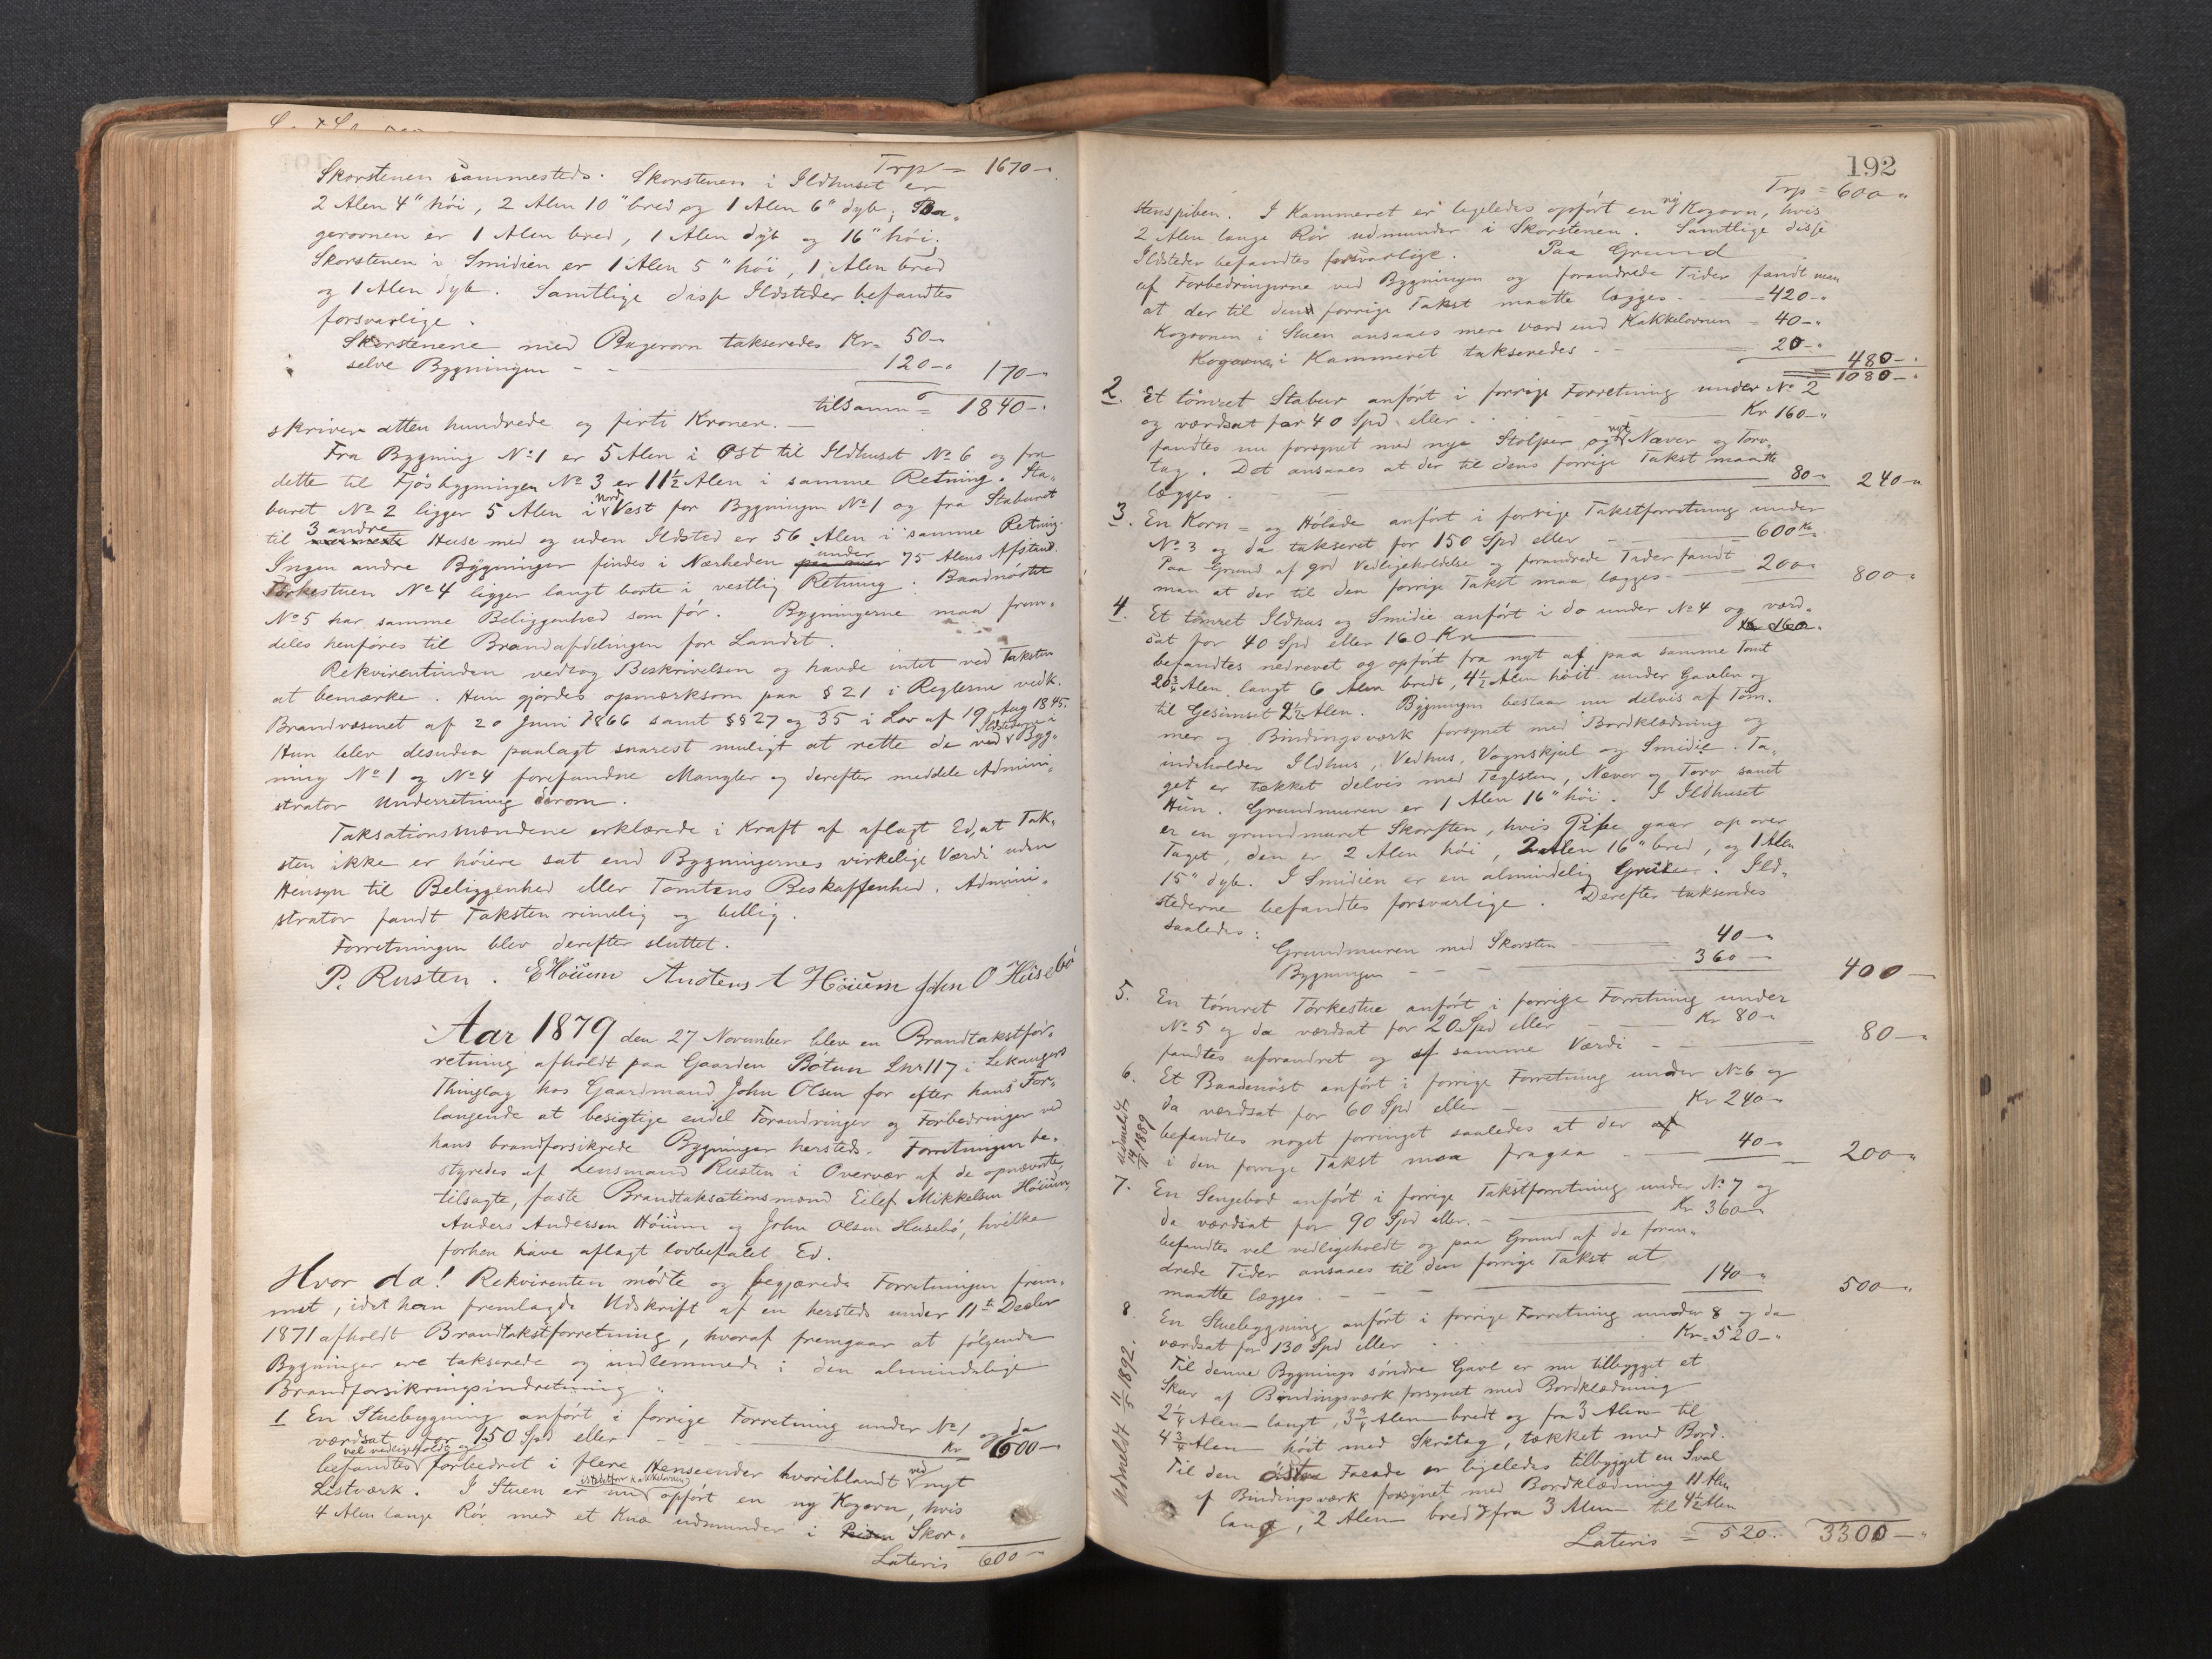 Trp = 1670 -"
Skorstenen sammesteds. Skorstenen i Ildhuset er
2 Alen 4" höi, 2 Alen 10" bred og 1 Alen 6" dyb; Ba-
gerovnen er 1 Alen bred, 1 Alen dyb og 16" höi;
Skorstenen i Smidien er 1 Alen 5" höi, 1 Alen bred
og 1 Alen dyb. Samtlige disse Ildsteder befandtes
forsvarlige.
Skorstenene med Bagerovn takseredes Kr= 50-"
selve Bygningen - - 120-" 170-"
tilsamn = 1840-"
skriver atten hundrede og firti Kroner. -
Fra Bygning No 1 er 5 Alen i Öst til Ildhuset No 6 og fra
dette til Fjösbygningen No 3 er 11 1/2 Alen i samme Retning. Sta-
buret No 2 ligger 5 Alen i Nord Vest for Bygningen No 1 og fra Staburet
til 3 andre Huse med og uden Ildsted er 56 Alen i samme Retning.
Ingen andre Bygninger findes i Nærheden under 75 Alens Afstand.
Törkestuen No 4 ligger langt borte i vestlig Retning. Baadnöstet
No 5 har samme Beliggenhed som för. Bygningerne maa frem-
deles henföres til Brandafdelingen for Landet.
Rekvirentinden vedtog Beskrivelsen og havde intet ved Taksten
at bemærke. Hun gjordes opmærksom paa § 21 i Reglerne vedk.
Brandvæsenet af 20 Juni 1866 samt §§ 27 og 35 i Lov af 19 Aug 1845.
Hun blev desuden paalagt snarest muligt at rette de ved Ildstederne i Byg-
ning No 1 og No 4 forefundne Mangler og derefter meddele Admini-
strator Underretning derom.
Taksationsmændene erklærede i Kraft af aflagt Ed, at Tak-
sten ikke er höiere sat end Bygningernes virkelige Værdi uden
Hensyn til Beliggenhed eller Tomtens Beskaffenhed. Admini-
strator fandt Taksten rimelig og billig.
Forretningen blev derefter sluttet.
P. Rusten. E Höium Andens A Höium John O Húsebö
Aar 1879 den 27 November blev en Brandtakstfor-
retning afholdt paa Gaarden Bötun Lnr 117 i Lekangers
Thinglag hos Gaardmand John Olsen for efter hans For-
langende at besigtige endel Forandringer og Forbedringer ved
hans brandforsikrede Bygninger hersteds. Forretningen be-
styredes af Lensmand Rusten i Overvær af de opnævnte,
tilsagte, faste Brandtaksationsmænd Eilef Mikkelsen Höium,
Anders Andersen Höium og John Olsen Husebö, hvilke
forhen have aflagt lovbefalet Ed.
Hvor da! Rekvirenten mödte og begjærede Forretningen frem-
met, idet han fremlagde Udskrift af en hersteds under 11te Decbr
1871 afholdt Brandtakstforretning, hvoraf fremgaar at fölgende
Bygninger ere takserede og indlemmede i den almindelige
Brandforsikringsindretning:
1 En Stuebygning anfört i forrige Forretning under No 1 og da
værdsat for 150 Spd eller - Kr 600-
befandtes vel vedligeholdt og forbedret i flere Henseender hvoriblandt ved nyt
Listværk. I Stuen er nu istedetfor Kakkelovnen opfört en ny Kogovn, hvis
4 Alen lange Rör med et Knæ udmunder i Skor-
Lateris 600-"
192
Trp = 600 "
stenspiben. I Kammeret er ligeledes opfört en ny Kogovn, hvis
2 Alen lange Rör udmunder i Skorstenen. Samtlige disse
Ildsteder befandtes forsvarlige. Paa Grund
af Forbedringerne ved Bygningen og forandrede Tider fandt man
at der til dens forrige Takst maatte lægges - = 420-"
Kogovnen i Stuen ansaaes mere værd end Kakkelovnen = 40-"
Kogovnen i Kammeret takseredes - 20-" 480-"
1080-"
2. Et tömret Stabur anfört i forrige Forretning under No 2
og værdsat for 40 Spd eller - Kr 160-"
fandtes nu forsynet med nye Stolper og nyt Næver og Torv-
tag. Det ansaaes at der til dens forrige Takst maatte
lægges - 80-" 240-"
3. En Korn= og Hölade anfört i forrige Takstforretning under
No 3 og da takseret for 150 Spd eller - 600 Kr
Paa Grund af god Vedligeholdelse og forandrede Tider fandt
man at der til den forrige Takst maa lægges - 200" 800-"
4. Et tömret Ildhus og Smidie anfört i do under No 4 og værd-
sat for 40 Spd eller 160 Kr
befandtes nedrevet og opfört fra nyt af paa samme Tomt
20 3/4 Alen langt 6 Alen bredt, 4 1/2 Alen höit under Gavlen og
til Gesimset 2 1/2 Alen. Bygningen bestaar nu delvis af Töm-
mer og Bindingsværk forsynet med Bordklædning og
indeholder Ildhus, Vedhus, Vognskjul og Smidie. Ta-
get er tækket delvis med Teglsten, Næver og Torv samt
Hun. Grundmuren er 1 Alen 16" höi. I Ildhuset
er en grundmuret Skorsten, hvis Pibe gaar op over
Taget, den er 2 Alen höi, 2 Alen 16" bred, og 1 Alen
15" dyb. I Smidien er en almindelig Grue. Ild-
stederne befandtes forsvarlige. Derefter takseredes
saaledes:
Grundmuren med Skorsten - 40-"
Bygningen - - 360-" 400-
5. En tömret Törkestue anfört i forrige Forretning under
No 5 og da værdsat for 20 Spd eller - Kr 80-"
fandtes uforandret og af samme Værdi - 80-"
6. Et Baadenöst anfört i forrige Forretning under No 6 og
da værdsat for 60 Spd eller - Kr 240-"
befandtes noget forringet saaledes at der af
i den forrige Takst maa fragaa - 40-" 200-"
Udmeldt 14/11 1889
7. En Sengebod anfört i forrige Takstforretning under No 7 og
da værdsat for 90 Spd eller. - Kr 360-"
befandtes vel vedligeholdt og paa Grund af de foran-
drede Tider ansaaes til den forrige Takst at
maatte lægges. - - - 140-" 500-"
8 En Stuebygning anfört i forrige Forretning under 8 og da
værdsat for 130 Spd eller - Kr= 520-"
Til denne Bygnings söndre Gavl er nu tilbygget et
Skur af Bindingsværk forsynet med Bordklædning
2 1/4 Alen langt, 3 3/4 Alen bredt og fra 3 Alen til
4 3/4 Alen höit med Skråtag, tækket med Bord.
Til den östre Facade er ligeledes tilbygget en Sval
af Bindingsværk forsynet med Bordklædning 11 Alen
lang, 2 Alen bred & fra 3 Alen til 4 1/2 Alen
Udmeldt 11/5 1892.
Lateris = 520. 3300-"